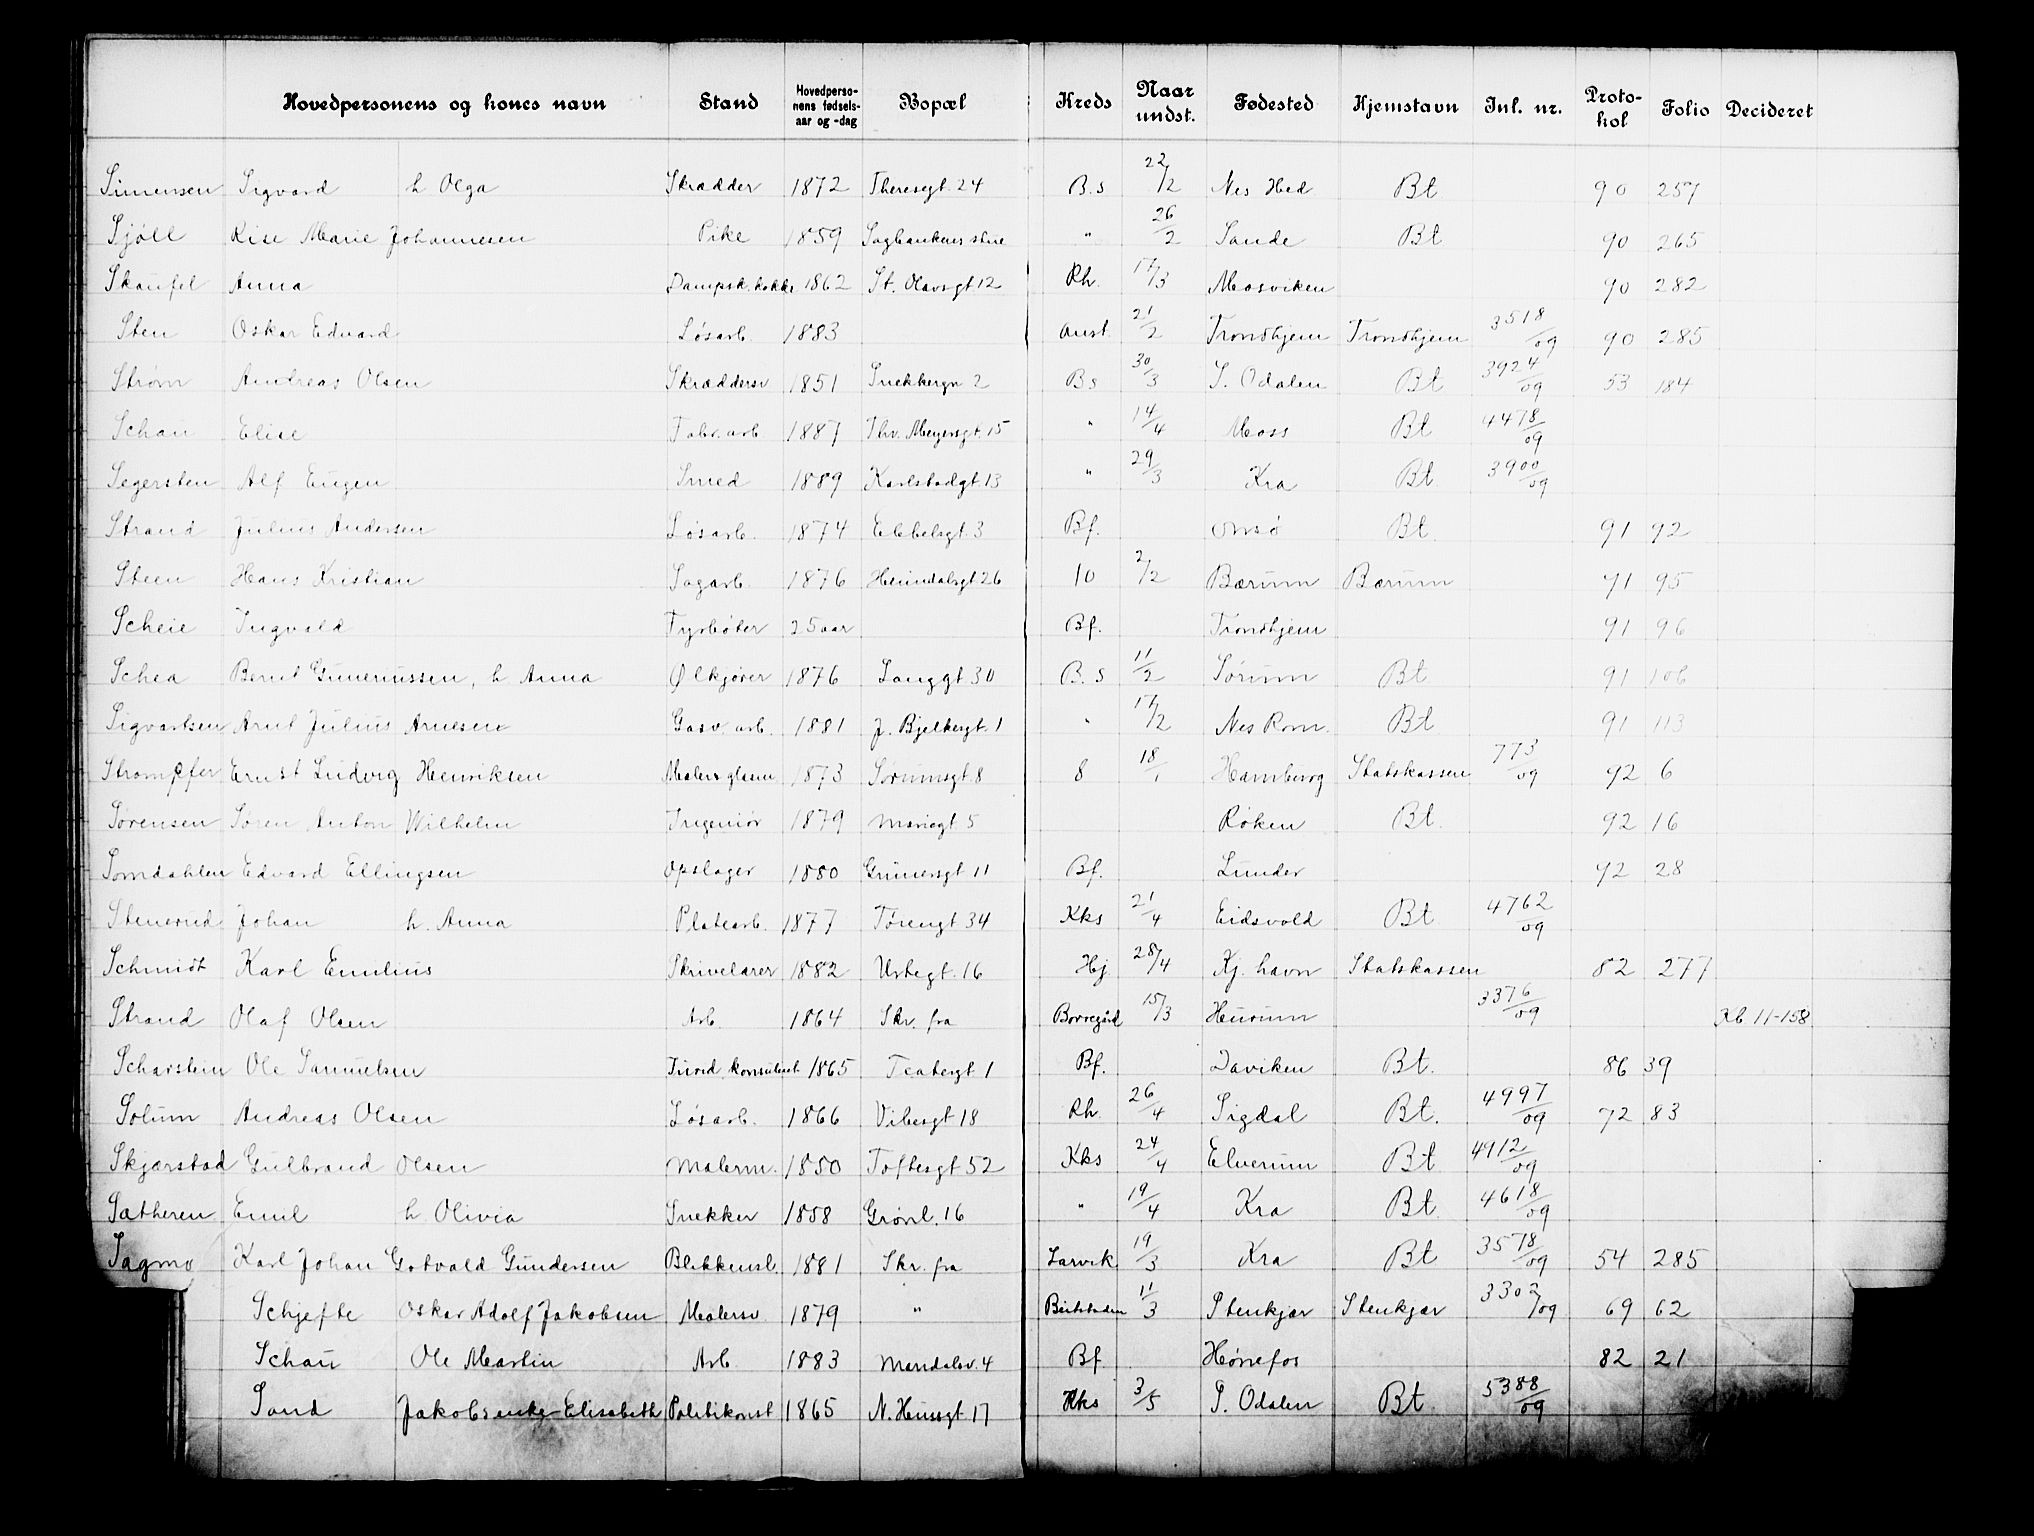 Hovedpersonens og kones navn Stand Hovedpersonens fødselsaar og -dag Bopæl Kreds Naar undst. Fødested Hjemstavn Inl. nr. Protokol Folio Decideret
Simensen Sigvard h Olga Skrædder 1872 Theresgt. 24 B.s 22/2 Nes Hed Bt 90 257
Sjöll Rise Marie Johannesen Pike 1859 Sagbankens stue " 26/2 Sande Bt 90 265
Skaufel Anna Dampsk.kokke 1862 St. Olavsgt 12 Rh. 17/3 Mosviken 90 282
Sten Oskar Edvard Løsarb 1883 Aust. 21/2 Trondhjem Trondhjem 3518/09 90 285
Strøm Andreas Olsen Skræddersv 1851 Snekkergn 2 Bs 30/3 S. Odalen Bt 3924/09 53 184
Schau Elise Fabr. arb 1887 Thv. Meyersgt. 15 " 14/4 Moss Bt 4478/09
Segersten Alf Eugen Smed 1889 Karlstadgt. 13 " 29/3 Kra Bt 3900/09
Strand Julius Andersen Løsarb. 1874 Ebbelsgt. 3 Bf. Onsø Bt. 91 92
Steen Hans Kristian Sagarb. 1876 Heimdalsgt 26 10 2/2 Bærum Bærum 91 95
Scheie Ingvald Fyrbøter 25 aar Bf. Trondhjem 91 96
Schea Bernt Guneriussen, h Anna Ølkjører 1876 Langgt 30 B.S 11/2 Sørum Bt 91 106
Sigvartsen Arnt Julius Arnesen Gasv. arb. 1881 J. Bjelkesgt. 1 " 17/2 Nes Rom. Bt 91 113
Strompfer Ernst Ludvig Henriksen Malers glasm 1873 Sørumsgt. 8 8 18/1 Hamburg Statskassen 773/09 92 6
Sørensen Søren Anton Wilhelm Ingeniør 1879 Mariegt 5 Røken Bt. 92 16
Somdahlen Edvard Ellingsen Opslager 1880 Grünersgt 11 Bf. Lunder 92 28
Stenerud Johan h. Anna Platearb. 1877 Tøiengt 34 Kks 21/4 Eidsvold Bt 4762/09
Schmidt Karl Emilius Skrivelærer 1882 Urtegt. 16 Hj. 28/4 Kj. havn Statskassen 82 277
Strand Olaf Olsen Arb. 1864 Skr. fra Borregård 15/3 Hurum 3376/09 Kb. 11-158
Scharstein Ole Samuelsen Jurid. konsulent 1865 Teatergt 1 Bf. Daviken Bt. 86 39
Solum Andreas Olsen Løsarb. 1866 Vibesgt 18 Rh. 26/4 Sigdal Bt. 4997/09 72 83
Skjærstad Gulbrand Olsen Malerm. 1850 Toftesgt 52 Kks 24/4 Elverum Bt 4912/09
Sætheren Emil h. Olivia Snekker 1858 Grønl. 16 " 19/4 Kra Bt. 4618/09
Sagmo Karl Johan Gotvald Gundersen Blikkensl. 1881 Skr. fra Larvik 19/3 Kra Bt 3578/09 54 285
Schjefte Oskar Adolf Jakobsen Malersv. 1879 " Beitstaden 11/3 Stenkjær Stenkjær 3302/09 69 62
Schau Ole Martin Arb 1883 Mandalsv. 4 Bf Hønefos 82 21
Sand Jakobs enke Elisabeth Politikonst 1865 N. Hussgt 17 Kks 3/5 S. Odalen Bt 5388/09